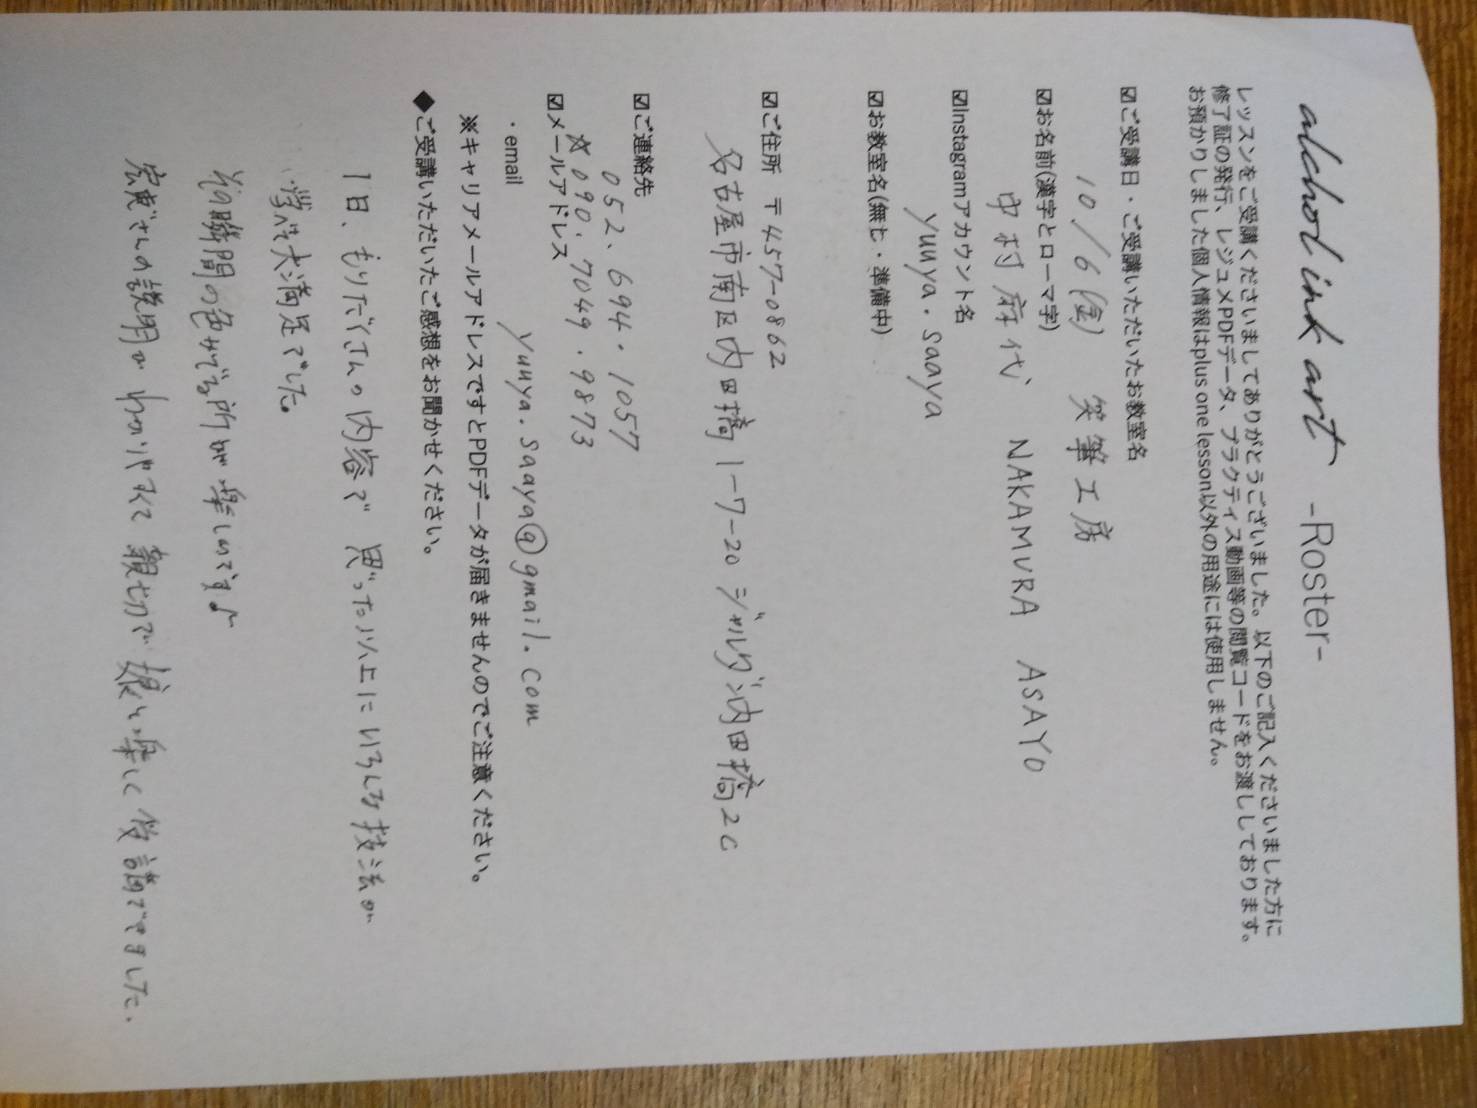 alcohol ink art -Roster-
レッスンをご受講くださいましてありがとうございました。以下のご記入くださいました方に
修了証の発行、レジュメPDFデータ、プラクティス動画等の閲覧コードをお渡ししております。
お預かりしました個人情報はplus one lesson以外の用途には使用しません。
☑ご受講日・ご受講いただいたお教室名
10/6(金) 笑筆工房
☑お名前(漢字とローマ字)
中村麻代 NAKAMURA ASAYO
☑Instagramアカウント名
yuuya.saaya
☑お教室名(無し・準備中)
☑ご住所 〒457-0862
名古屋市南区内田橋1-7-20ジャルダン内田橋2C
☑ご連絡先
052.694.1057
☆090.7049.9873
☑メールアドレス
・email yuuya.saaya@gmail.com
※キャリアメールアドレスですとPDFデータが届きませんのでご注意ください。
◆ご受講いただいたご感想をお聞かせください。
1日、もりだくさんの内容で 思った以上にいろんな技法が
学べて大満足でした。
その瞬間の色がでる所が楽しいです♪
さんの説明が わかりやすくて 親切で 楽しく受講できました。